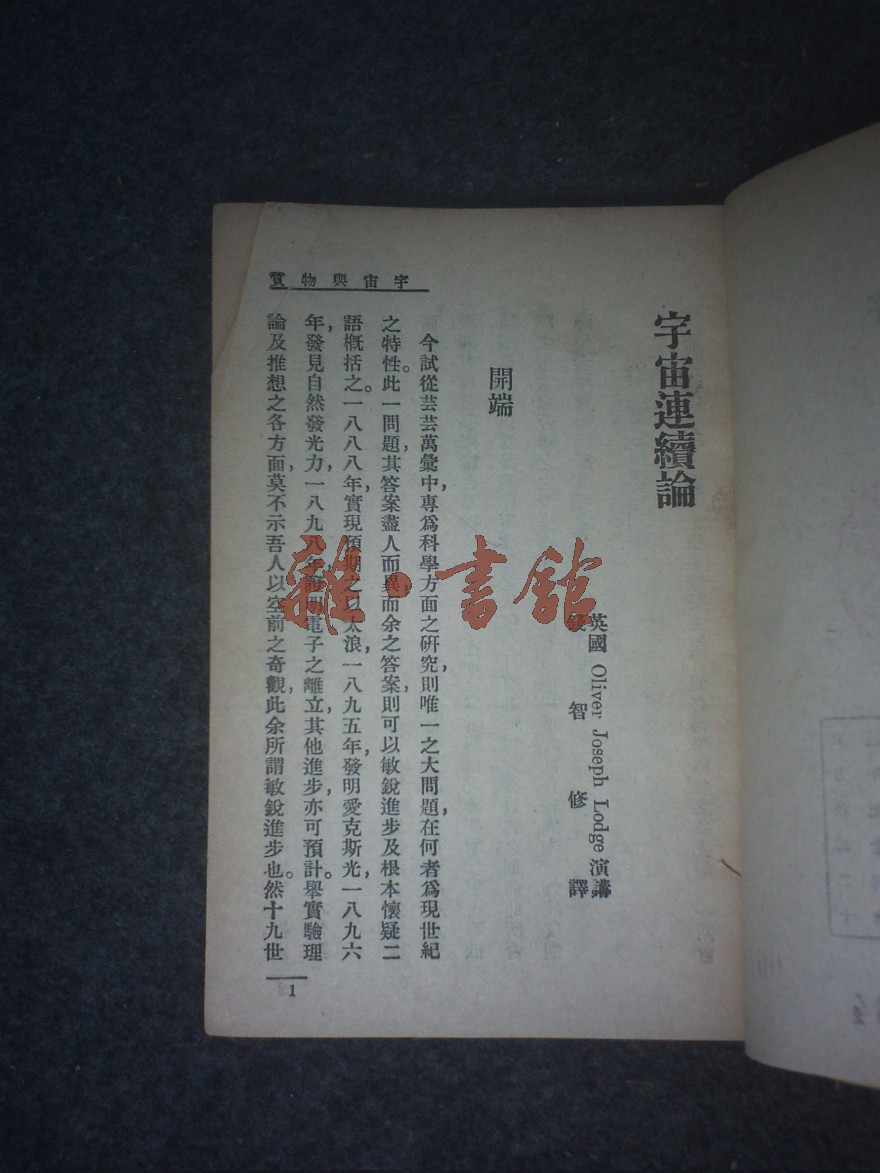 宇宙連續論
英國 Oliver Joseph Lodge 演講
錢智修譯
開端
今試從芸芸萬彙中，專爲科學方面之硏究，則唯一之大問題，在何者爲現世紀
之特性。此一問題，其答案盡人而異，而余之答案，則可以敏銳進步及根本懷疑二
語槪括之。一八八八年，實現預期之以太浪，一八九五年，發明愛克斯光，一八九六
年，發見自然發光力，一八九八年，證明電子之離立，其他進步，亦可預計。舉實驗理
論及推想之各方面，莫不示吾人以空前之奇觀，此余所謂敏銳進步也。然十九世
宇宙與物質
1
雜·書館